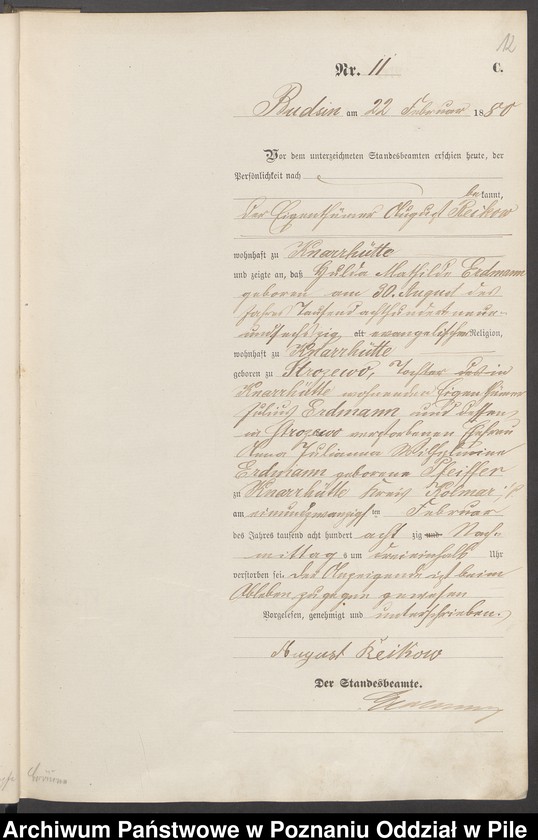 12
Nr. 11 C.
Budsin am 22 Februar 1880
Vor dem unterzeichneten Standesbeamten erschien heute, der
Persönlichkeit nach
bekannt,
der Eigenthümer August Reikow
wohnhaft zu Knarrhütte
und zeigte an, daß Julia Mathilde Erdmann
geboren am 30. August des
Jahres Tausend achthundert neun-
und sechszig, alt evangelischer Religion,
wohnhaft zu Knarrhütte
geboren zu Strozewo, Tochter des in
Knarrhütte wohnenden Eigenthümer
Julius Erdmann und dessen
in Strozewo verstorbenen Ehefrau
Anna Julianna Wilhelmine
Erdmann geborene Pfeiffer
zu Knarrhütte Kreis Kolmar i/P
am einundzwanzigsten Februar
des Jahres tausend acht hundert achtzig und Nach-
mittags um dreieinhalb Uhr
verstorben sei. Der Anzeigende ist beim
Ableben zugegen gewesen
Vorgelesen, genehmigt und unterschrieben.
August Reikow
Der Standesbeamte.
Archiwum Państwowe w Poznaniu Oddział w Pile